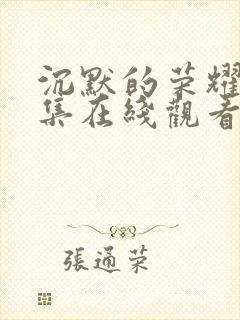 沉默的荣耀
集在綫觀看
張通荣